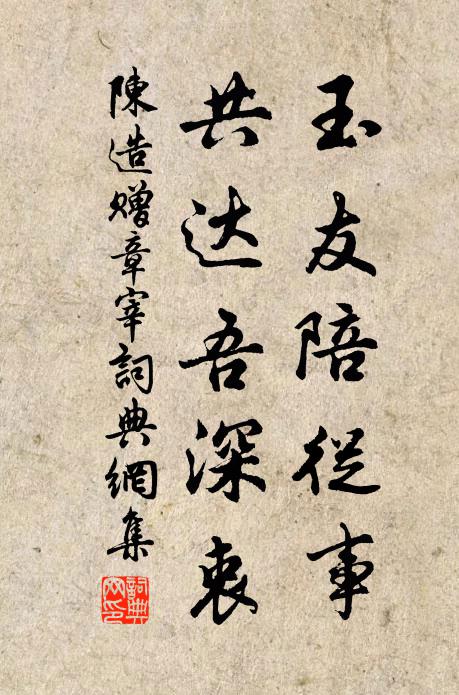 玉友陪從事
共达吾深衷
陳造赠章宰詞典網集
詞典網印